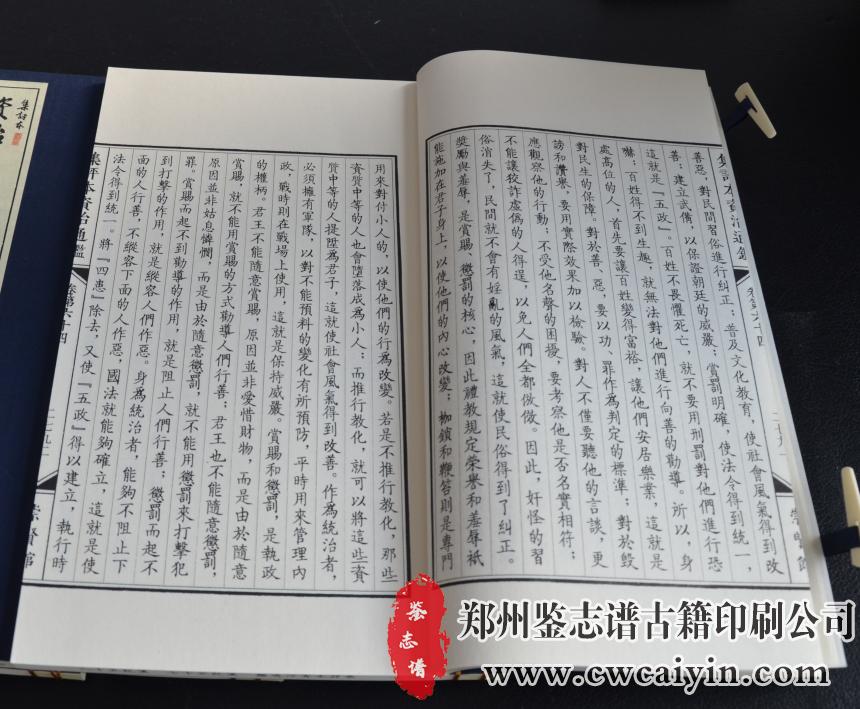 集評本資治通鑑 卷第六十四 崇賢館
善惡，對民間習俗進行糾正；普及文化教育，使社會風氣得到改
善；建立武備，以保證朝廷的威嚴；賞罰明確，使法令得到統一，
這就是『五政』。百姓不畏懼死亡，就不要用刑罰對他們進行恐
嚇；百姓得不到生趣，就無法對他們進行向善的勸導。所以，身
處高位的人，首先要讓百姓變得富裕，讓他們安居樂業，這就是
對民生的保障。對於善、惡，要以功、罪作為判定的標準；對於毀
謗和讚譽，要用實際效果加以檢驗。對人不僅要聽他的言談，更
應觀察他的行動；不受他名聲的困擾，要考察他是否名實相符；
不能讓狡詐虛偽的人得逞，以免人們全都倣傚。因此，奸怪的習
俗消失了，民間就不會有婬亂的風氣，這就使民俗得到了糾正。
獎勵與羞辱，是賞賜、懲罰的核心，因此禮教規定榮譽和羞辱祇
能施加在君子身上，以使他們的內心改變；枷鎖和鞭笞則是專門
用來對付小人的，以使他們的行為改變。若是不推行教化，那些
資質中等的人也會墮落成為小人；而推行教化，就可以將這些資
質中等的人提陞為君子，這就使社會風氣得到改善。作為統治者，
必須擁有軍隊，以對不能預料的變化有所預防，平時用來管理內
政，戰時則在戰場上使用，這就是保持威嚴。賞賜和懲罰，是執政
的權柄。君王不能隨意賞賜，原因並非愛惜財物，而是由於隨意
賞賜，就不能用賞賜的方式勸導人們行善；君王也不能隨意懲罰，
原因並非姑息憐憫，而是由於隨意懲罰，就不能用懲罰來打擊犯
罪。賞賜而起不到勸導的作用，就是阻止人們行善；懲罰而起不
到打擊的作用，就是縱容人們作惡。身為統治者，能夠不阻止下
面的人行善，不縱容下面的人作惡，國法就能夠確立，這就是使
法令得到統一。將『四患』除去，又使『五政』得以建立，執行時
集評本資治通鑑 卷第六十四 二七九二 崇賢館
集評本
資治
鉴志谱
郑州鉴志谱古籍印刷公司
www.cwcaiyin.com